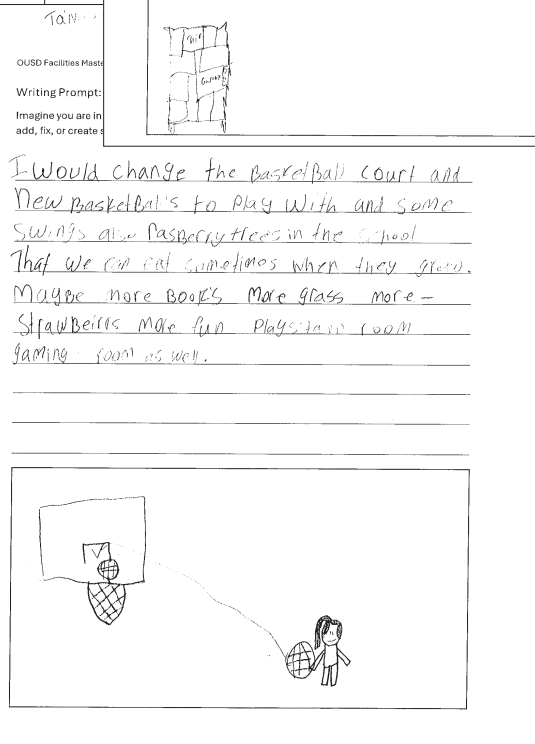 OUSD Facilities Maste
Writing Prompt:
Imagine you are in
add, fix, or create s
I Would change the BasketBall court and
New BasketBall's to Play With and some
Swings also Rasberry trees in the school
That we can eat sometimes when they grow.
MayBe more Book's More grass more-
StrawBeirrs More fun Playstain room
gaming room as well.